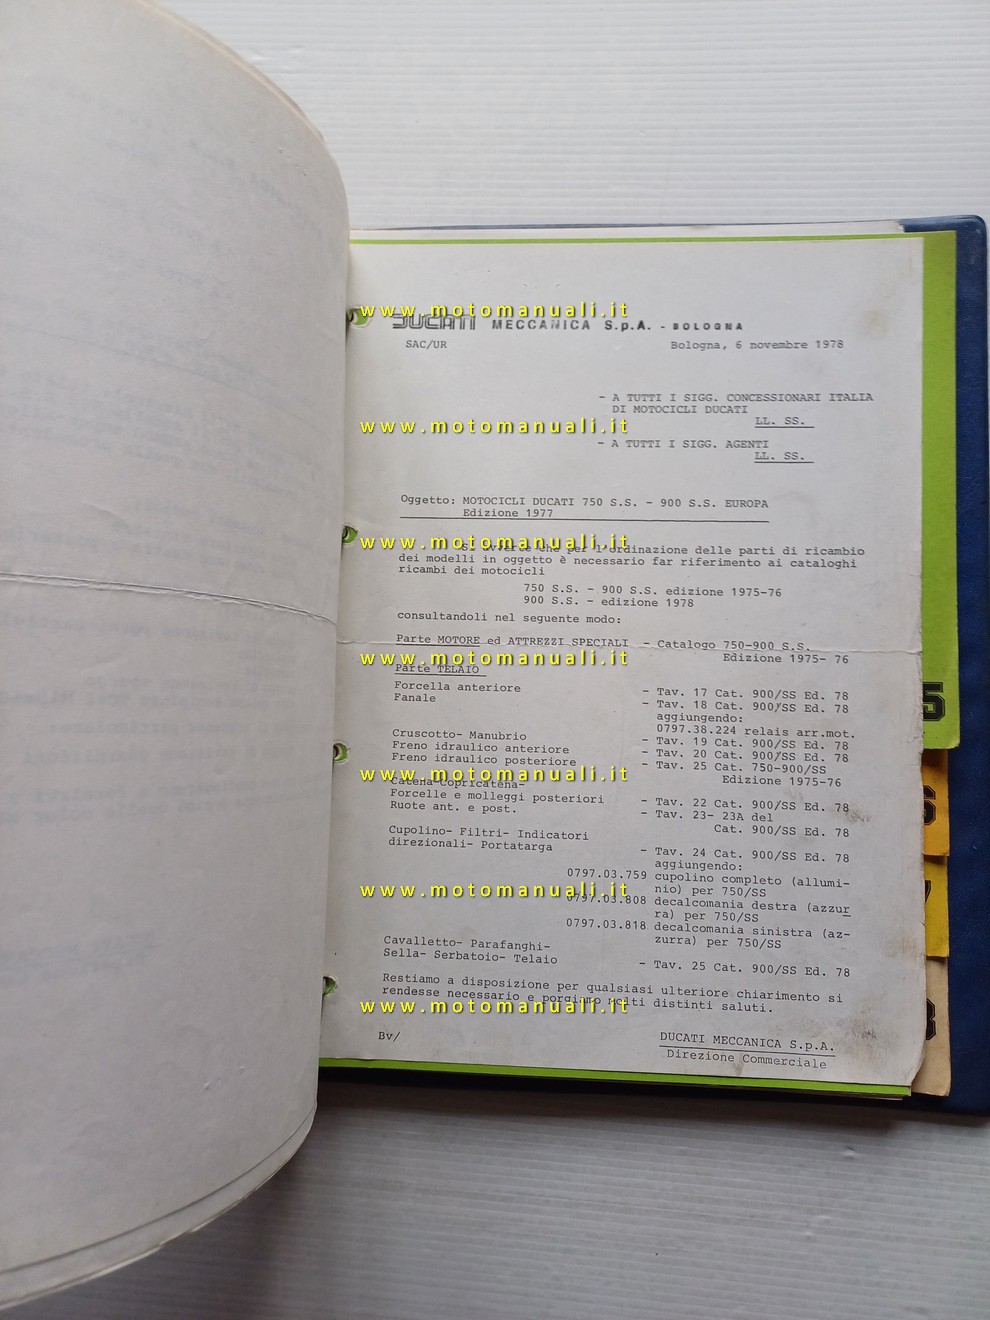 www.motomanuali.it
DUCATI MECCANICA S.p.A. - BOLOGNA
SAC/UR Bologna, 6 novembre 1978
- A TUTTI I SIGG. CONCESSIONARI ITALIA
DI MOTOCICLI DUCATI
LL. SS.
www.motomanuali.it
- A TUTTI I SIGG. AGENTI
LL. SS.
Oggetto: MOTOCICLI DUCATI 750 S.S. - 900 S.S. EUROPA
Edizione 1977
www.motomanuali.it
Si avverte che per l'ordinazione delle parti di ricambio
dei modelli in oggetto è necessario far riferimento ai cataloghi
ricambi dei motocicli
750 S.S. - 900 S.S. edizione 1975-76
900 S.S. - edizione 1978
consultandoli nel seguente modo:
Parte MOTORE ed ATTREZZI SPECIALI - Catalogo 750-900 S.S.
Edizione 1975- 76
www.motomanuali.it
Parte TELAIO
Forcella anteriore - Tav. 17 Cat. 900/SS Ed. 78
Fanale - Tav. 18 Cat. 900/SS Ed. 78
aggiungendo:
0797.38.224 relais arr.mot.
Cruscotto- Manubrio - Tav. 19 Cat. 900/SS Ed. 78
Freno idraulico anteriore - Tav. 20 Cat. 900/SS Ed. 78
Freno idraulico posteriore - Tav. 25 Cat. 750-900/SS
Edizione 1975-76
www.motomanuali.it
Catena-Copricatena-
Forcelle e molleggi posteriori - Tav. 22 Cat. 900/SS Ed. 78
Ruote ant. e post. - Tav. 23- 23A del
Cat. 900/SS Ed. 78
Cupolino- Filtri- Indicatori
direzionali- Portatarga - Tav. 24 Cat. 900/SS Ed. 78
aggiungendo:
0797.03.759 cupolino completo (allumi-
nio) per 750/SS
www.motomanuali.it
0797.03.808 decalcomania destra (azzur
ra) per 750/SS
0797.03.818 decalcomania sinistra (az-
zurra) per 750/SS
Cavalletto- Parafanghi-
Sella- Serbatoio- Telaio - Tav. 25 Cat. 900/SS Ed. 78
Restiamo a disposizione per qualsiasi ulteriore chiarimento si
rendesse necessario e porgiamo molti distinti saluti.
www.motomanuali.it
Bv/ DUCATI MECCANICA S.p.A.
Direzione Commerciale
5
6
7
8